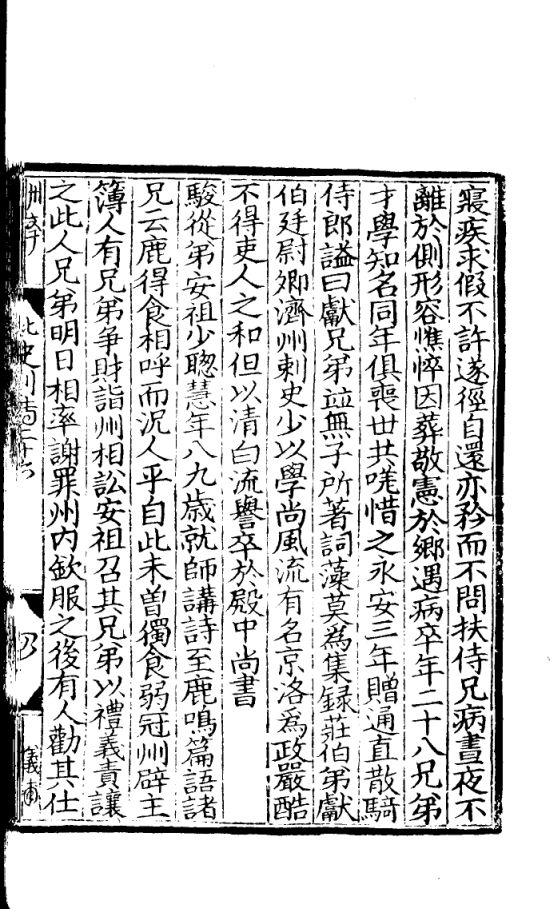 寢疾求假不許遂徑自還亦矜而不問扶侍兄病晝夜不
離於側形容憔悴因葬敬憲於鄉遇病卒年二十八兄弟
才學知名同年俱喪世共嗟惜之永安三年贈通直散騎
侍郎謚曰獻兄弟並無子所著詞藻莫為集録莊伯弟獻
伯廷尉卿濟州刺史少以學尚風流有名京洛為政嚴酷
不得吏人之和但以清白流譽卒於殿中尚書
駿從弟安祖少聦慧年八九歲就師講詩至鹿鳴篇語諸
兄云鹿得食相呼而況人乎自此未曽獨食弱冠州辟主
簿人有兄弟争財詣州相訟安祖召其兄弟以禮義責讓
之此人兄弟明日相率謝罪州内欽服之後有人勸其仕
北史列傳二十六